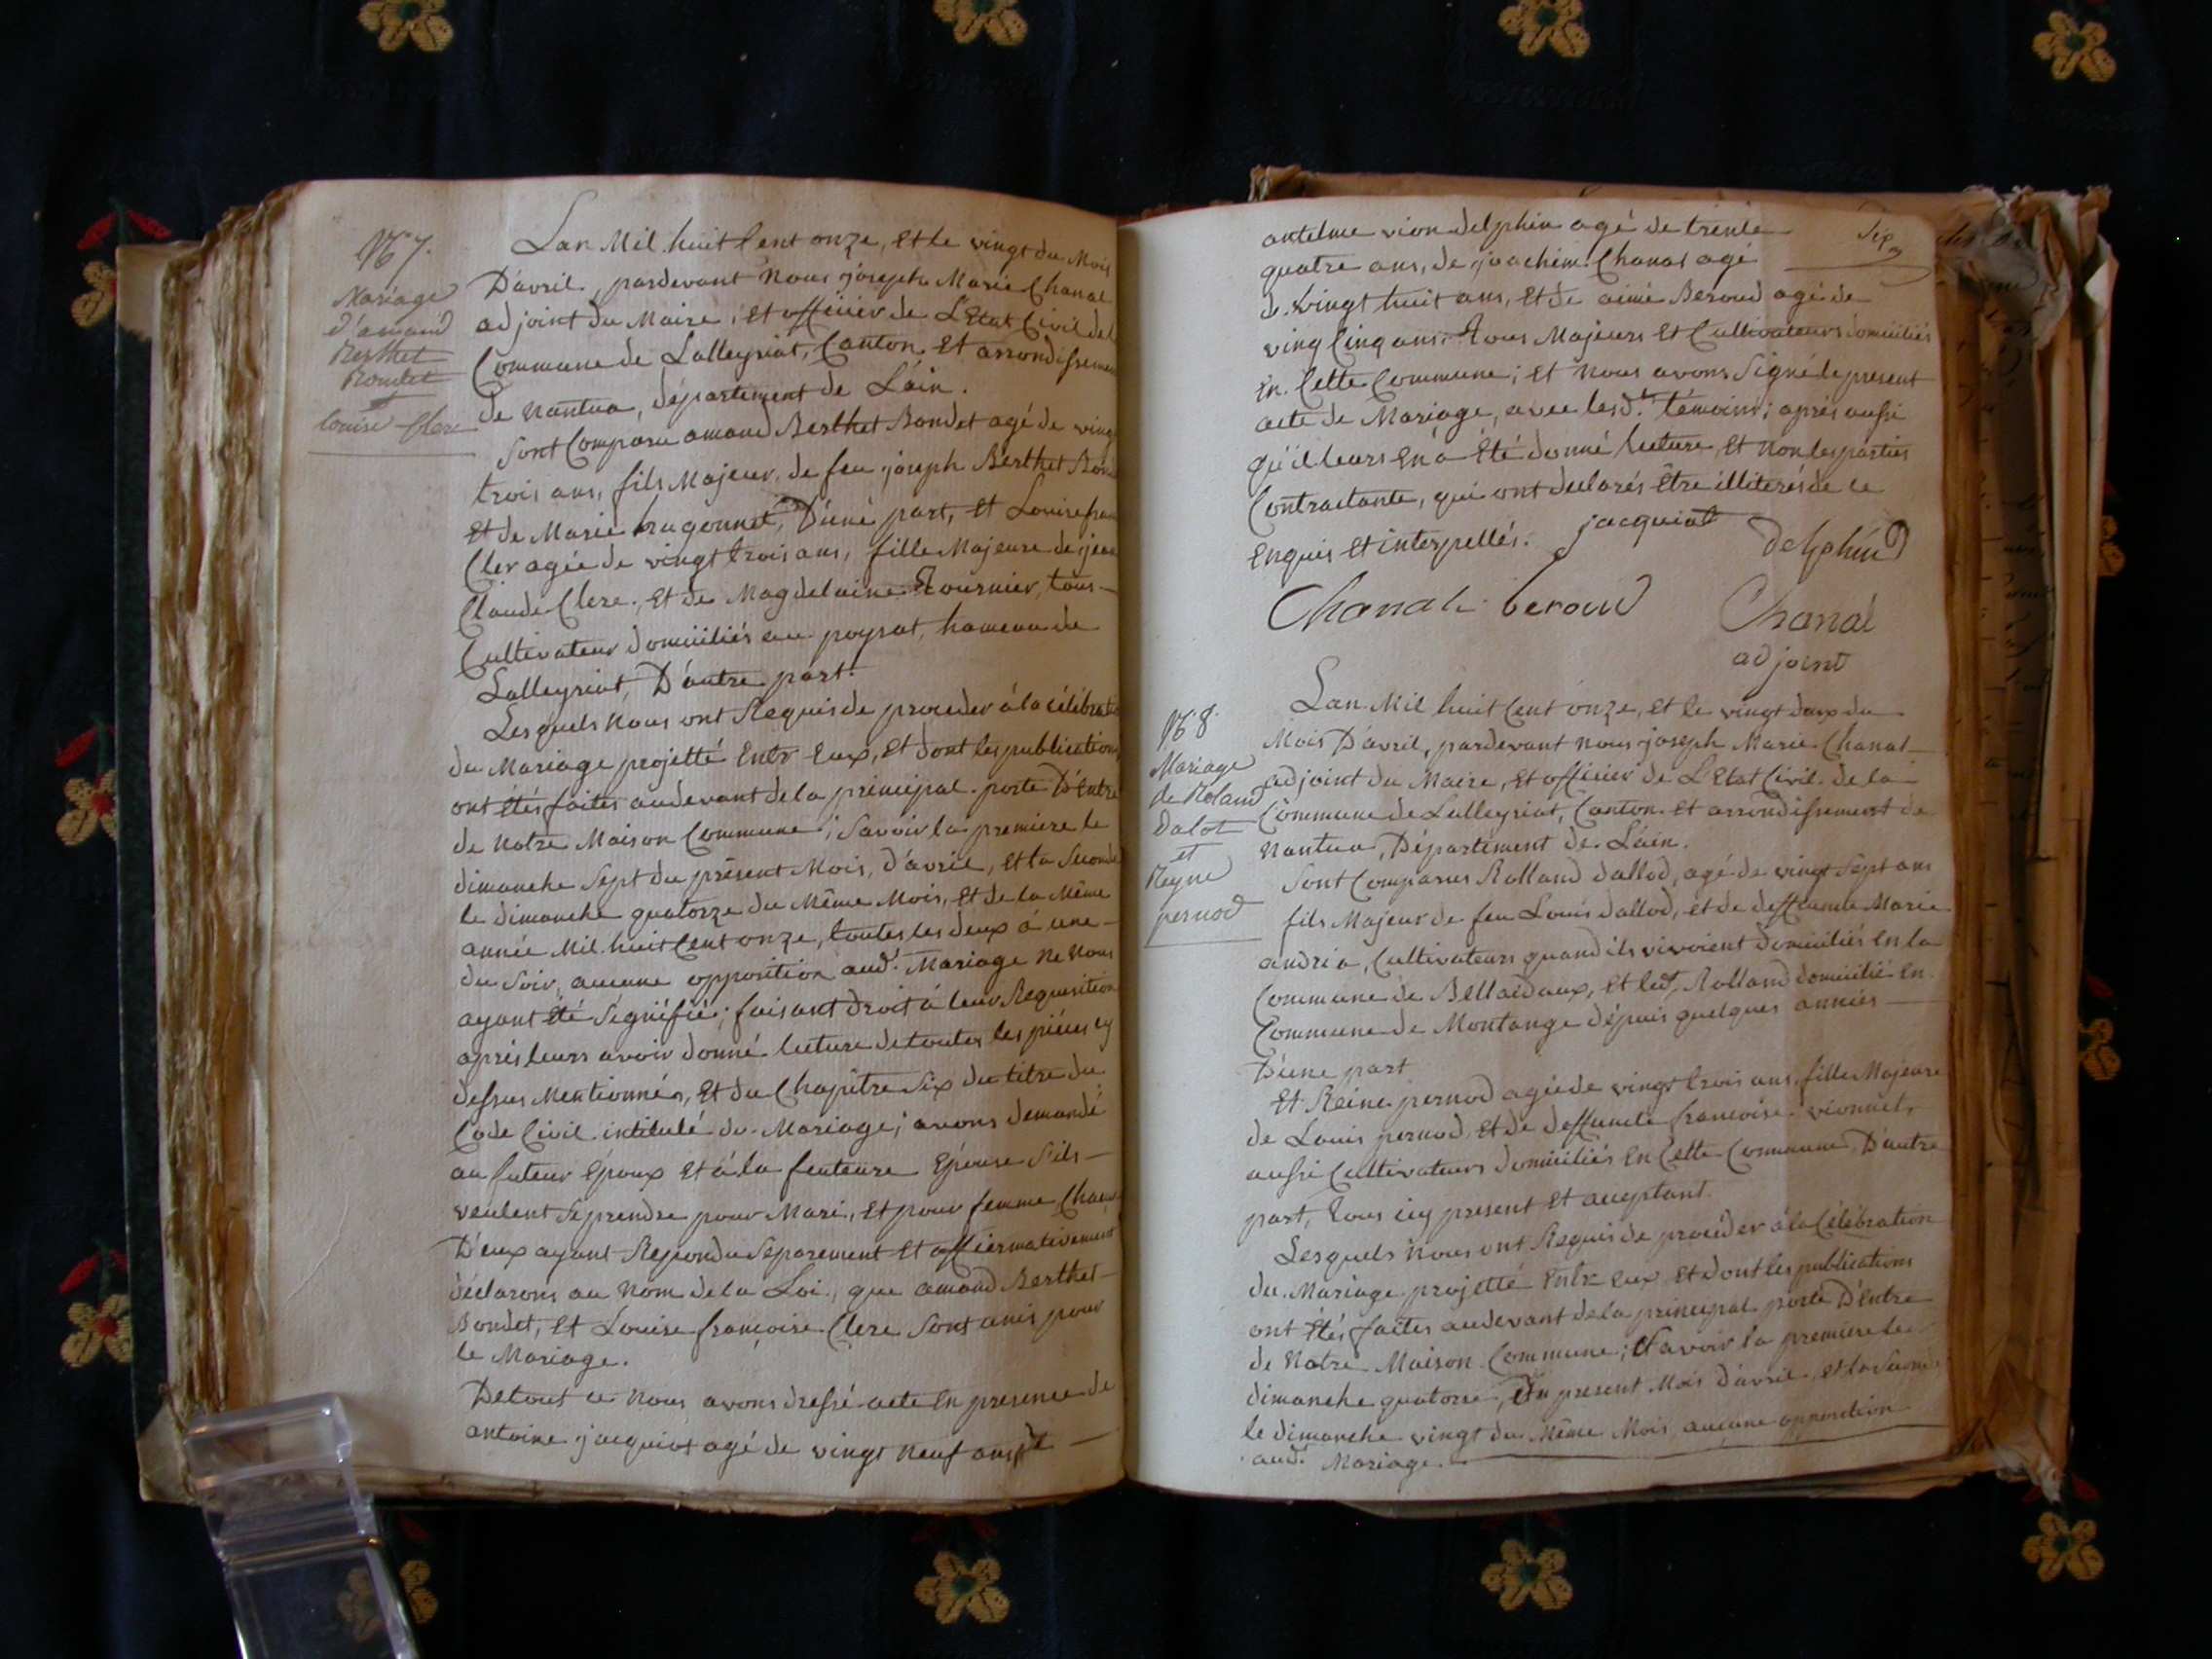 N° 7.
Mariage
d'amand
Berthet
Bondet
et
louise Clerc
Lan Mil huit Cent onze, Et le vingt du Mois
D'avril, pardevant Nous joseph Marie Chanal
adjoint du Maire, Et officier de L'Etat Civil de l
Commune de Lalleyriat, Canton Et arrondissemen
de Nantua, département de L'ain.
Sont Comparu amand Berthet Bondet agé de ving
trois ans, fils Majeur, de feu joseph Berthet Bon
Et de Marie hugonnet, D'une part, Et Louise fran
Cler agée de vingt trois ans, fille Majeure de jean
Claude Clerc, Et de Magdelaine Tournier, tous
Cultivateur domiciliés au poysat, hameau de
Lalleyriat, D'autre part.
Lesquels Nous ont Requis de proceder à la célébrati
du Mariage projetté Entr Eux, Et dont les publications
ont étés faites audevant de la principal porte D'Entre
de Notre Maison Commune; Savoir la premiere le
dimanche Sept du présent Mois, d'avril, Et la Seconde
le dimanche quatorze du Même Mois, Et de la Même
année Mil huit Cent onze, toutes les deux à une
du Soir, aucune opposition aud. Mariage Ne Nous
ayant été Signifié; faisant droit à leur Requisition
après leurs avoir donné lecture de toutes les piéces cy
dessus Mentionnés, Et du Chapitre Six du titre du
Code Civil intitulé du Mariage; avons demandé
au futeur Epoux Et à la feuteure Epouse S'ils
veulent Se prendre pour Mari, Et pour femme, Chacun
D'eux ayant Repondu Séparement Et affiermativement
déclarons au Nom de la Loi, que amand Berthet
Bondet, Et Louise françoise Clerc Sont unis pour
le Mariage.
De tout ce Nous avons dressé acte En presence de
antoine jacquiot agé de vingt neuf ans, d
Six
antelme vion delphin agé de trente
quatre ans, de joachim Chanal agé
de vingt huit ans, Et de aimé Beroud agé de
ving Cinq ans, Tous Majeurs Et Cultivateurs domiciliés
En Cette Commune; Et Nous avons Signé le present
acte de Mariage, avec lesd.ts témoins; après aussi
qu'il leurs En a été donné lecture, Et Non les parties
Contractante, qui ont declarés être illiterés de ce
Enquis Et interpellés. jacquiot delphin
Chanal beroud Chanal
adjoint
N° 8.
Mariage
de Roland
Dalot
et
Reyne
pernod
Lan Mil huit Cent onze, et le vingt deux du
Mois D'avril, pardevant nous joseph Marie Chanal
adjoint du Maire, Et officier de L'Etat Civil de la
Commune de Lalleyriat, Canton Et arrondissement de
Nantua, Département de L'ain.
Sont Comparus Rolland dallod, agé de vingt Sept ans
fils Majeur de feu Louis dallod, et de deffeunte Marie
andréa, Cultivateurs quand ils vivoient domiciliés En la
Commune de Bellaidoux, et led. Rolland domicilié En
Commune de Montange dépuis quelques années
D'une part
Et Reine pernod agée de vingt trois ans, fille Majeure
de Louis pernod, Et de deffunete francoise vionnet,
aussi Cultivateurs domiciliés En Cette Commune D'autre
part, tous icy present Et aceptant.
Lesquels Nous ont Requis de procéder à la Célébration
du Mariage projetté Entr Eux, Et dont les publications
ont étés faites audevant de la principal porte D'Entre
de Notre Maison Commune; Savoir la premiere le
dimanche quatorze, du present Mois d'avril, et la Seconde
le dimanche vingt du Même Mois, aucune opposition
aud. Mariage.